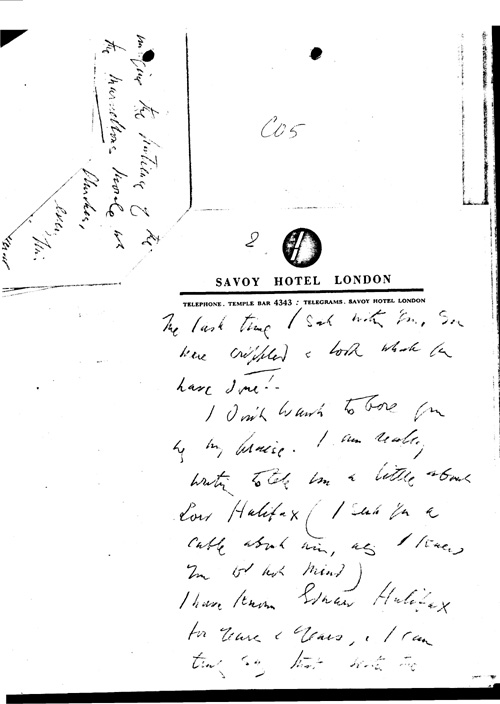 the marvellous people we
C05
2
SAVOY HOTEL LONDON
TELEPHONE. TEMPLE BAR 4343 : TELEGRAMS. SAVOY HOTEL LONDON
The last time I sat with you, you
were crippled & look what you
have done!
I don't want to bore you
by my praise. I am really
writing to tell you a little about
Lord Halifax (I sent you a
cable about him, as I knew
you wd not mind)
I have known Edward Halifax
for years & years, & I can
truly say that